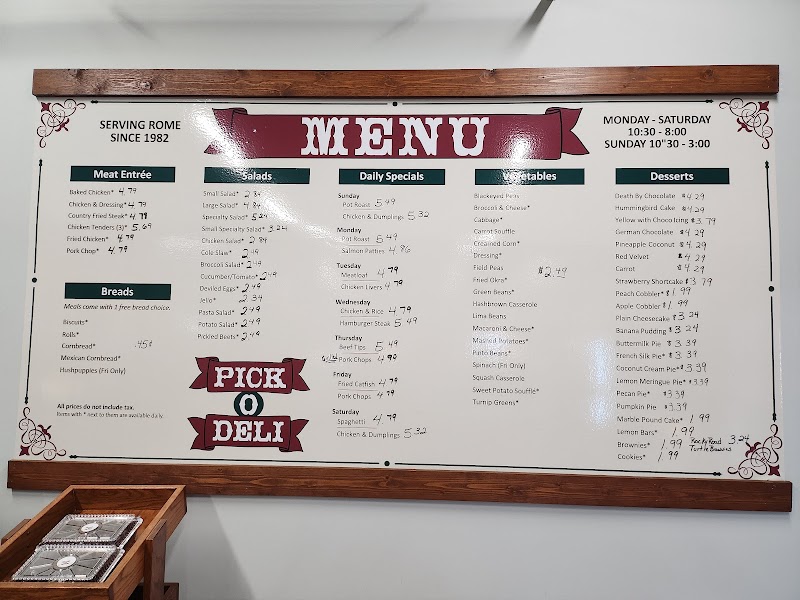 SERVING ROME
SINCE 1982
MENU
MONDAY - SATURDAY
10:30 - 8:00
SUNDAY 10"30 - 3:00
Meat Entrée
Baked Chicken* 4.79
Chicken & Dressing* 4.79
Country Fried Steak* 4.79
Chicken Tenders (3)* 5.69
Fried Chicken* 4.79
Pork Chop* 4.79
Breads
Meals come with 1 free bread choice.
Biscuits*
Rolls*
Cornbread* .45¢
Mexican Cornbread*
Hushpuppies (Fri Only)
All prices do not include tax.
Items with * next to them are available daily.
Salads
Small Salad* 2.84
Large Salad* 4.84
Specialty Salad* 5.24
Small Specialty Salad* 3.24
Chicken Salad* 2.84
Cole Slaw* 2.49
Broccoli Salad* 2.49
Cucumber/Tomato* 2.49
Deviled Eggs* 2.49
Jello* 2.34
Pasta Salad* 2.49
Potato Salad* 2.49
Pickled Beets* 2.49
PICK
O
DELI
Daily Specials
Sunday
Pot Roast 5.49
Chicken & Dumplings 5.32
Monday
Pot Roast 5.49
Salmon Patties 4.86
Tuesday
Meatloaf 4.79
Chicken Livers 4.79
Wednesday
Chicken & Rice 4.79
Hamburger Steak 5.49
Thursday
Beef Tips 5.49
Pork Chops 4.90
Friday
Fried Catfish 4.79
Pork Chops 4.79
Saturday
Spaghetti 4.79
Chicken & Dumplings 5.32
Vegetables
Blackeyed Peas
Broccoli & Cheese*
Cabbage*
Carrot Souffle
Creamed Corn*
Dressing*
Field Peas $2.49
Fried Okra*
Green Beans*
Hashbrown Casserole
Lima Beans
Macaroni & Cheese*
Mashed Potatoes*
Pinto Beans*
Spinach (Fri Only)
Squash Casserole
Sweet Potato Souffle*
Turnip Greens*
Desserts
Death By Chocolate $4.29
Hummingbird Cake $4.29
Yellow with Choco Icing $3.79
German Chocolate $4.29
Pineapple Coconut $4.29
Red Velvet $4.29
Carrot $4.29
Strawberry Shortcake $3.79
Peach Cobbler* $1.99
Apple Cobbler $1.99
Plain Cheesecake $3.24
Banana Pudding $3.24
Buttermilk Pie $3.39
French Silk Pie* $3.39
Coconut Cream Pie* $3.39
Lemon Meringue Pie* $3.39
Pecan Pie* $3.39
Pumpkin Pie $3.39
Marble Pound Cake* 1.99
Lemon Bars* 1.99
Brownies* 1.99 Rocky Road 3.24
Turtle Brownies
Cookies* 1.99